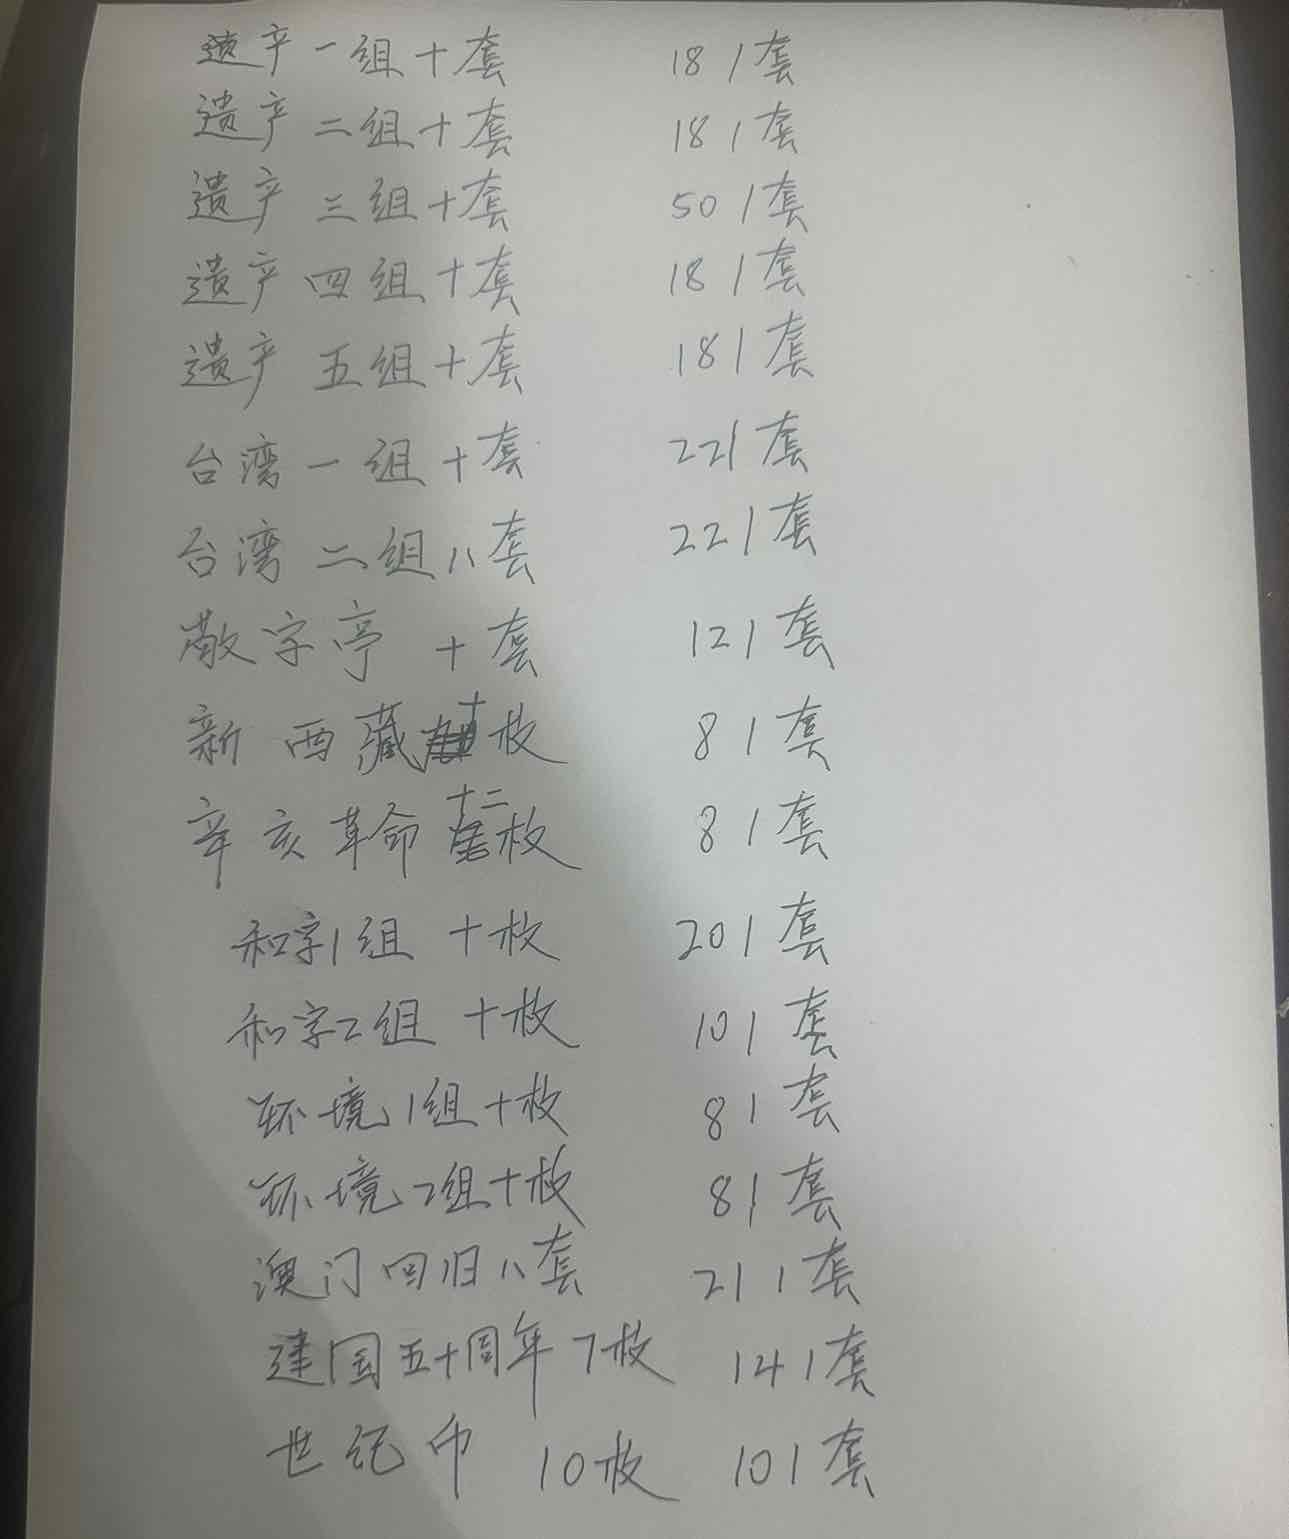 遗产一组十套 18/套
遗产二组十套 18/套
遗产三组十套 50/套
遗产四组十套 18/套
遗产五组十套 18/套
台湾一组十套 22/套
台湾二组八套 22/套
敬字亭 十套 12/套
新西藏十枚 8/套
辛亥革命十二枚 8/套
和字1组 十枚 20/套
和字2组 十枚 10/套
环境1组十枚 8/套
环境2组十枚 8/套
澳门回归八套 21/套
建国五十周年7枚 14/套
世纪币 10枚 10/套